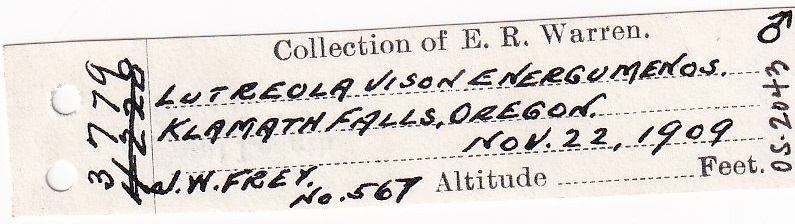 Collection of E. R. Warren.
♂
LUTREOLA VISON ENERGUMENOS.
KLAMATH FALLS, OREGON.
NOV. 22, 1909
J.W. FREY, No. 567 Altitude Feet.
3779
OS-2043